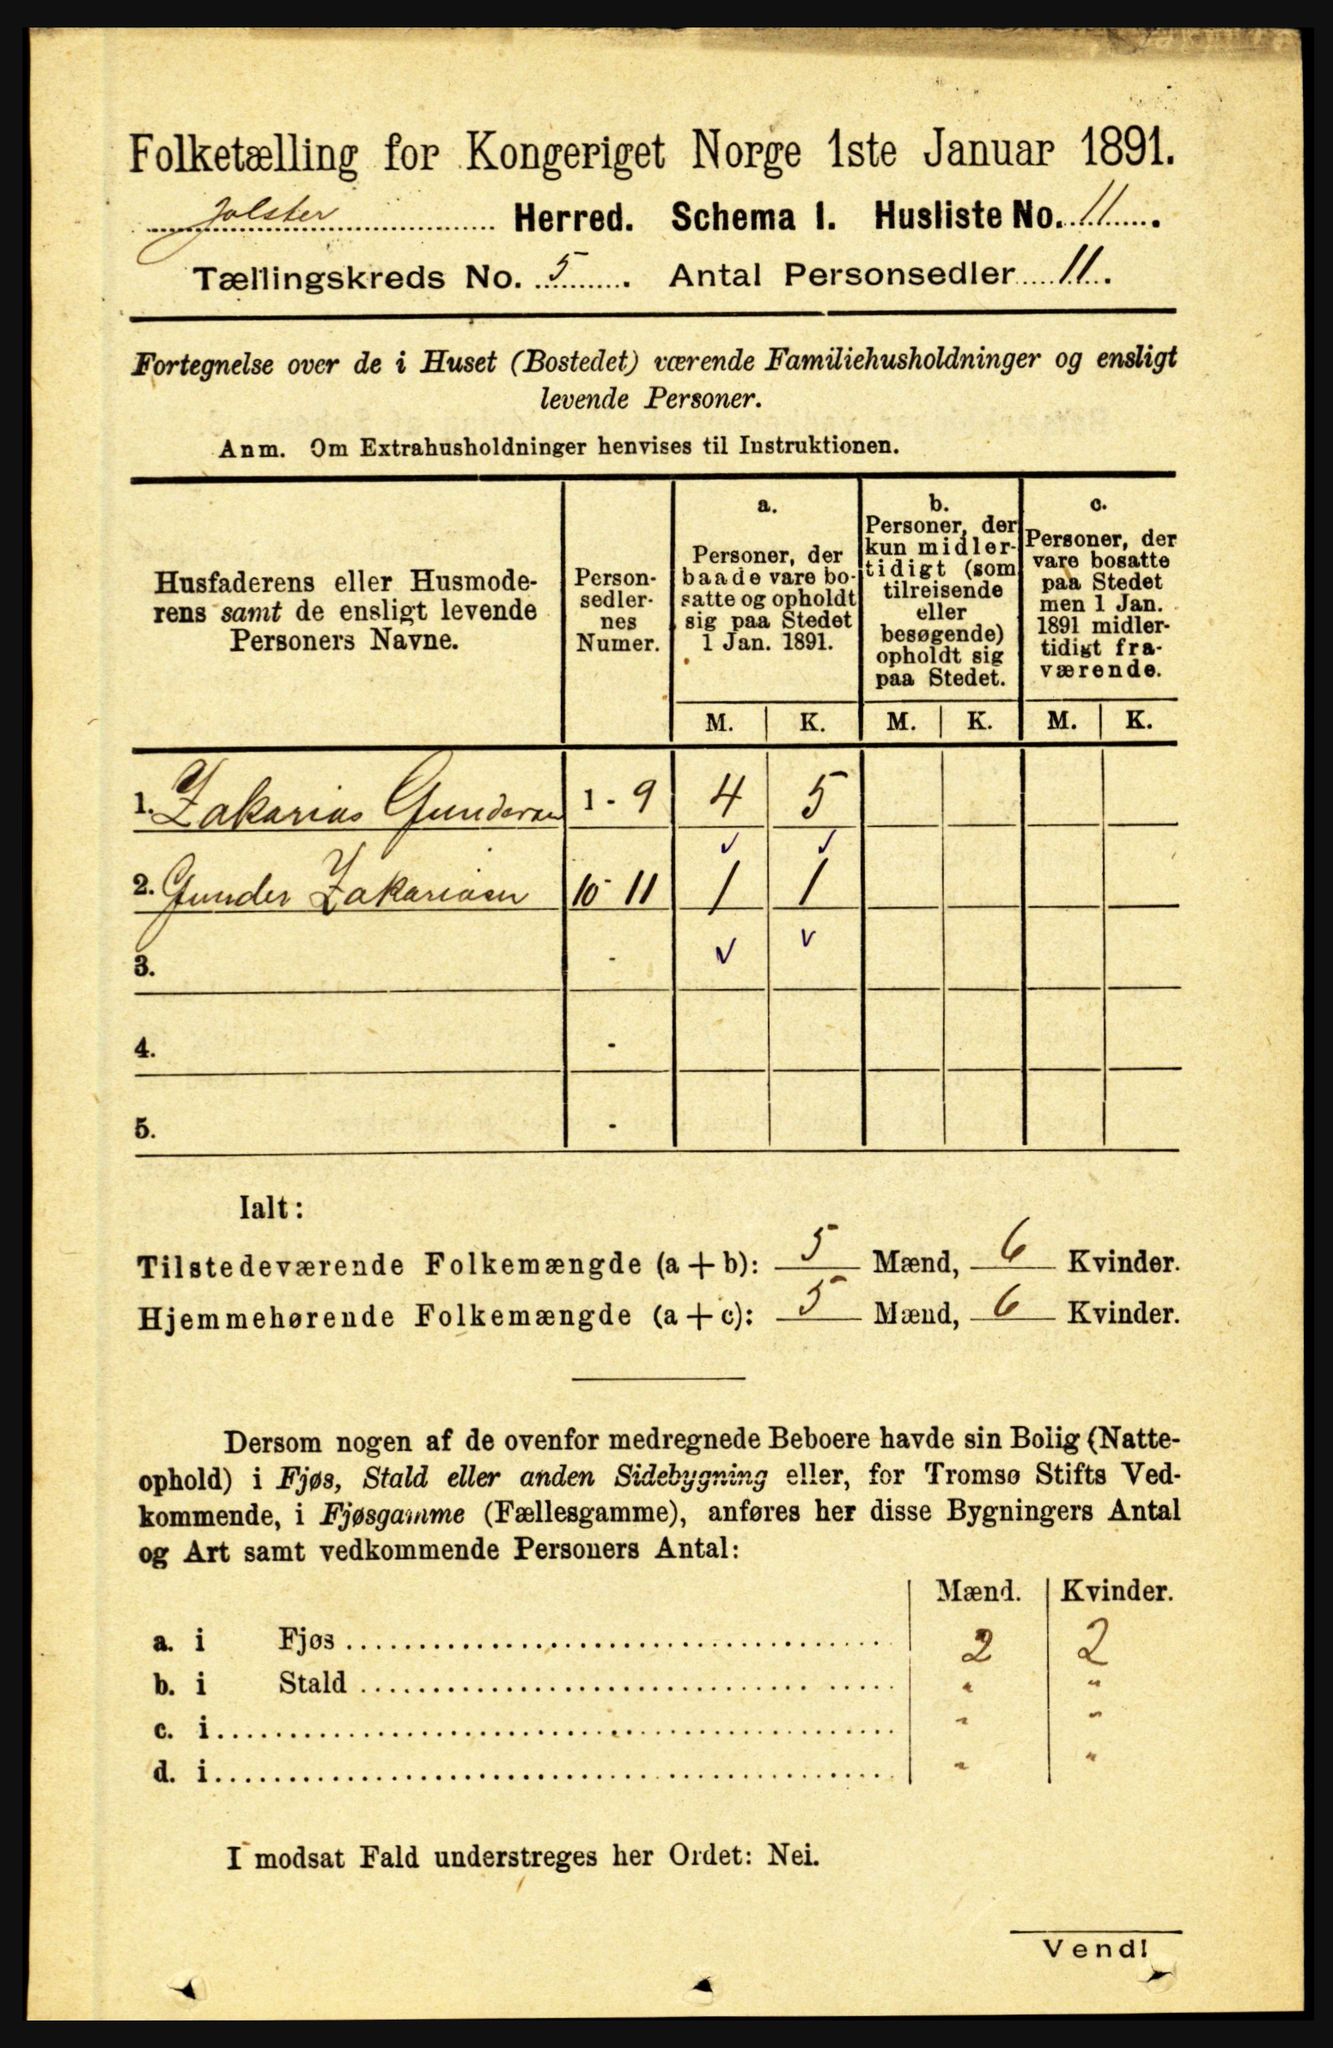 Folketælling for Kongeriget Norge 1ste Januar 1891.
Jolster Herred. Schema I. Husliste No. 11.
Tællingskreds No. 5. Antal Personsedler 11.
Fortegnelse over de i Huset (Bostedet) værende Familiehusholdninger og ensligt
levende Personer.
Anm. Om Extrahusholdninger henvises til Instruktionen.
Husfaderens eller Husmode-
rens samt de ensligt levende
Personers Navne.
Person-
sedler-
nes
Numer.
a.
Personer, der
baade vare bo-
satte og opholdt
sig paa Stedet
1 Jan. 1891.
b.
Personer, der
kun midler-
tidigt (som
tilreisende
eller
besøgende)
opholdt sig
paa Stedet.
c.
Personer, der
vare bosatte
paa Stedet
men 1 Jan.
1891 midler-
tidigt fra-
værende.
M. K. M. K. M. K.
1. Zakarias Gundersen 1 - 9 4 5
2. Gunder Zakariasen 10 - 11 1 1
3. -
4. -
5. -
Ialt:
Tilstedeværende Folkemængde (a + b): 5 Mænd, 6 Kvinder.
Hjemmehørende Folkemængde (a + c): 5 Mænd, 6 Kvinder.
Dersom nogen af de ovenfor medregnede Beboere havde sin Bolig (Natte-
ophold) i Fjøs, Stald eller anden Sidebygning eller, for Tromsø Stifts Ved-
kommende, i Fjøsgamme (Fællesgamme), anføres her disse Bygningers Antal
og Art samt vedkommende Personers Antal:
Mænd. Kvinder.
a. i Fjøs 2 2
b. i Stald " "
c. i " "
d. i " "
I modsat Fald understreges her Ordet: Nei.
Vend!